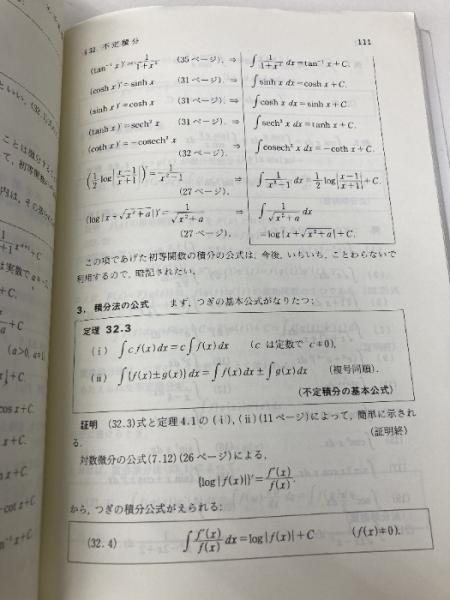 §32 不定積分 111
(tan⁻¹ x)′= 1/(1+x²) (35ページ), ⇒ ∫ 1/(1+x²) dx=tan⁻¹ x+C.
(cosh x)′=sinh x (31ページ), ⇒ ∫sinh x dx=cosh x+C.
(sinh x)′=cosh x (31ページ), ⇒ ∫cosh x dx=sinh x+C.
(tanh x)′=sech² x (31ページ), ⇒ ∫sech² x dx=tanh x+C.
(coth x)′=−cosech² x (32ページ), ⇒ ∫cosech² x dx=−coth x+C.
(1/2 log|(x−1)/(x+1)|)′= 1/(x²−1) (27ページ), ⇒ ∫ 1/(x²−1) dx= 1/2 log|(x−1)/(x+1)|+C.
(log|x+√(x²+a)|)′= 1/√(x²+a) (27ページ), ⇒ ∫ 1/√(x²+a) dx
=log|x+√(x²+a)|+C.
この項であげた初等関数の積分の公式は,今後,いちいち,ことわらないで
利用するので,暗記されたい.
3. 積分法の公式 まず,つぎの基本公式がなりたつ:
定理 32.3
(i) ∫c f(x)dx=c∫f(x)dx (c は定数で c≠0).
(ii) ∫{f(x)±g(x)}dx=∫f(x)dx±∫g(x)dx (複号同順).
(不定積分の基本公式)
証明 (32.3)式と定理4.1の(i),(ii)(11ページ)によって,簡単に示され
る. (証明終)
対数微分の公式(7.12)(26ページ)による,
{log|f(x)|}′= f′(x)/f(x).
から,つぎの積分公式がえられる:
(32.4) ∫ f′(x)/f(x) dx=log|f(x)|+C (f(x)≠0).